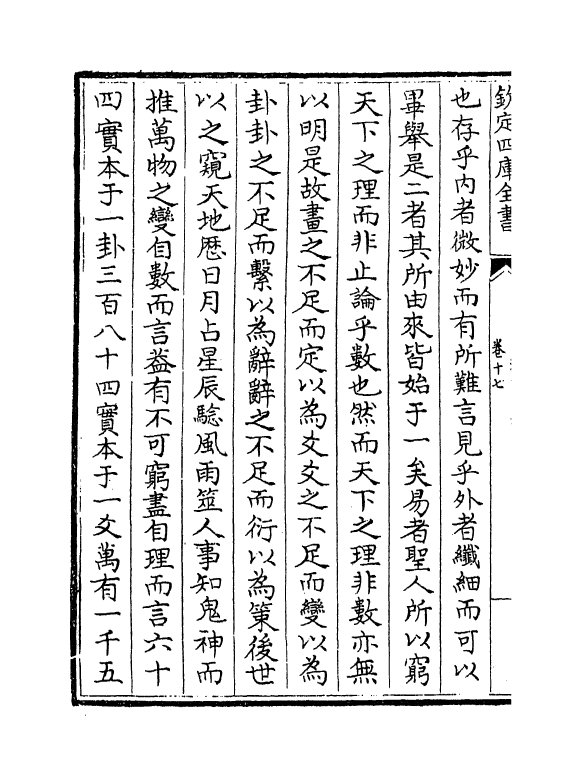 欽定四庫全書
卷十七
也存乎内者微妙而有所難言見乎外者纖細而可以
畢舉是二者其所由來皆始于一矣易者聖人所以窮
天下之理而非止論乎數也然而天下之理非數亦無
以明是故畫之不足而定以為爻爻之不足而變以為
卦卦之不足而繫以為辭辭之不足而衍以為策後世
以之窺天地歴日月占星辰驗風雨筮人事知鬼神而
推萬物之變自數而言葢有不可窮盡自理而言六十
四實本于一卦三百八十四實本于一爻萬有一千五